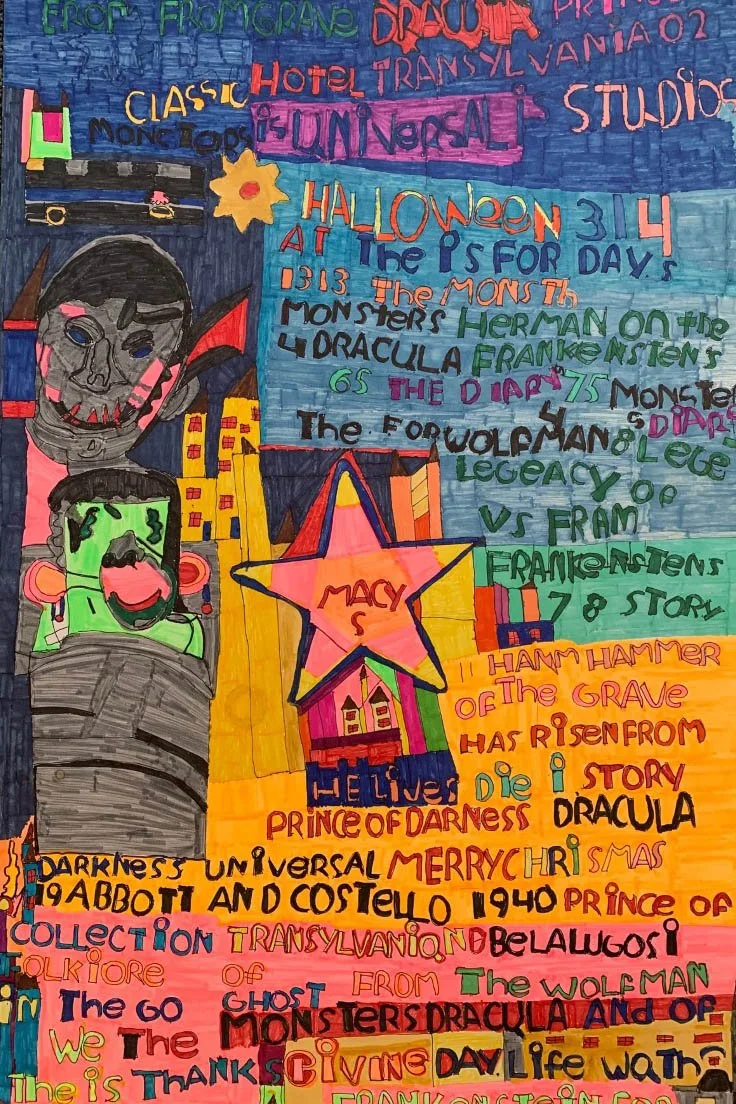 FROM GRAVE DRACULA
HOTEL TRANSYLVANIA 02
CLASSIC
STUDIOS
MONCTORS
is UNIVERSAL is
HALLOWEEN 314
AT The is FOR DAY.s
1313 The MONSTh
MONSTERS HERMAN ON the
4 DRACULA FRANKENSTEN'S
65 THE DIARY 75 MONSTE
The FORWOLFMAN 4 8 LEGE
S DIARY
LEGEACY OF
VS FRAM
FRANKENSTENS
MACY
S
7 8 STORY
11 HANM HAMMER
OF The GRAVE
HAS RISEN FROM
HE Lives Die i STORY
PRINCE OF DARNESS DRACULA
DARKNESS UNIVERSAL MERRY CHRISMAS
19 ABBOTT AND COSTELLO 1940 PRINCE OF
COLLECTION TRANSYLVANIQND BELALUGOSI
FOLKIORE OF FROM The WOLFMAN
in The GO GHOST
MONSTERS DRACULA AND OF
We The
The is THANKSGIVINE DAY. Life wath?
FRANKENSTEIN FOR